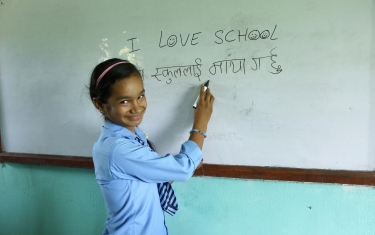 I LOVE SCHOOL
म स्कुललाई माया गर्छु